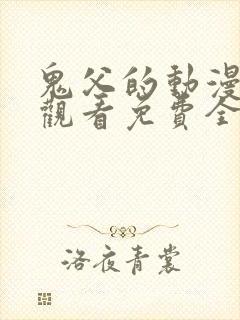 鬼父的動漫
觀看免費全
洛夜青裳